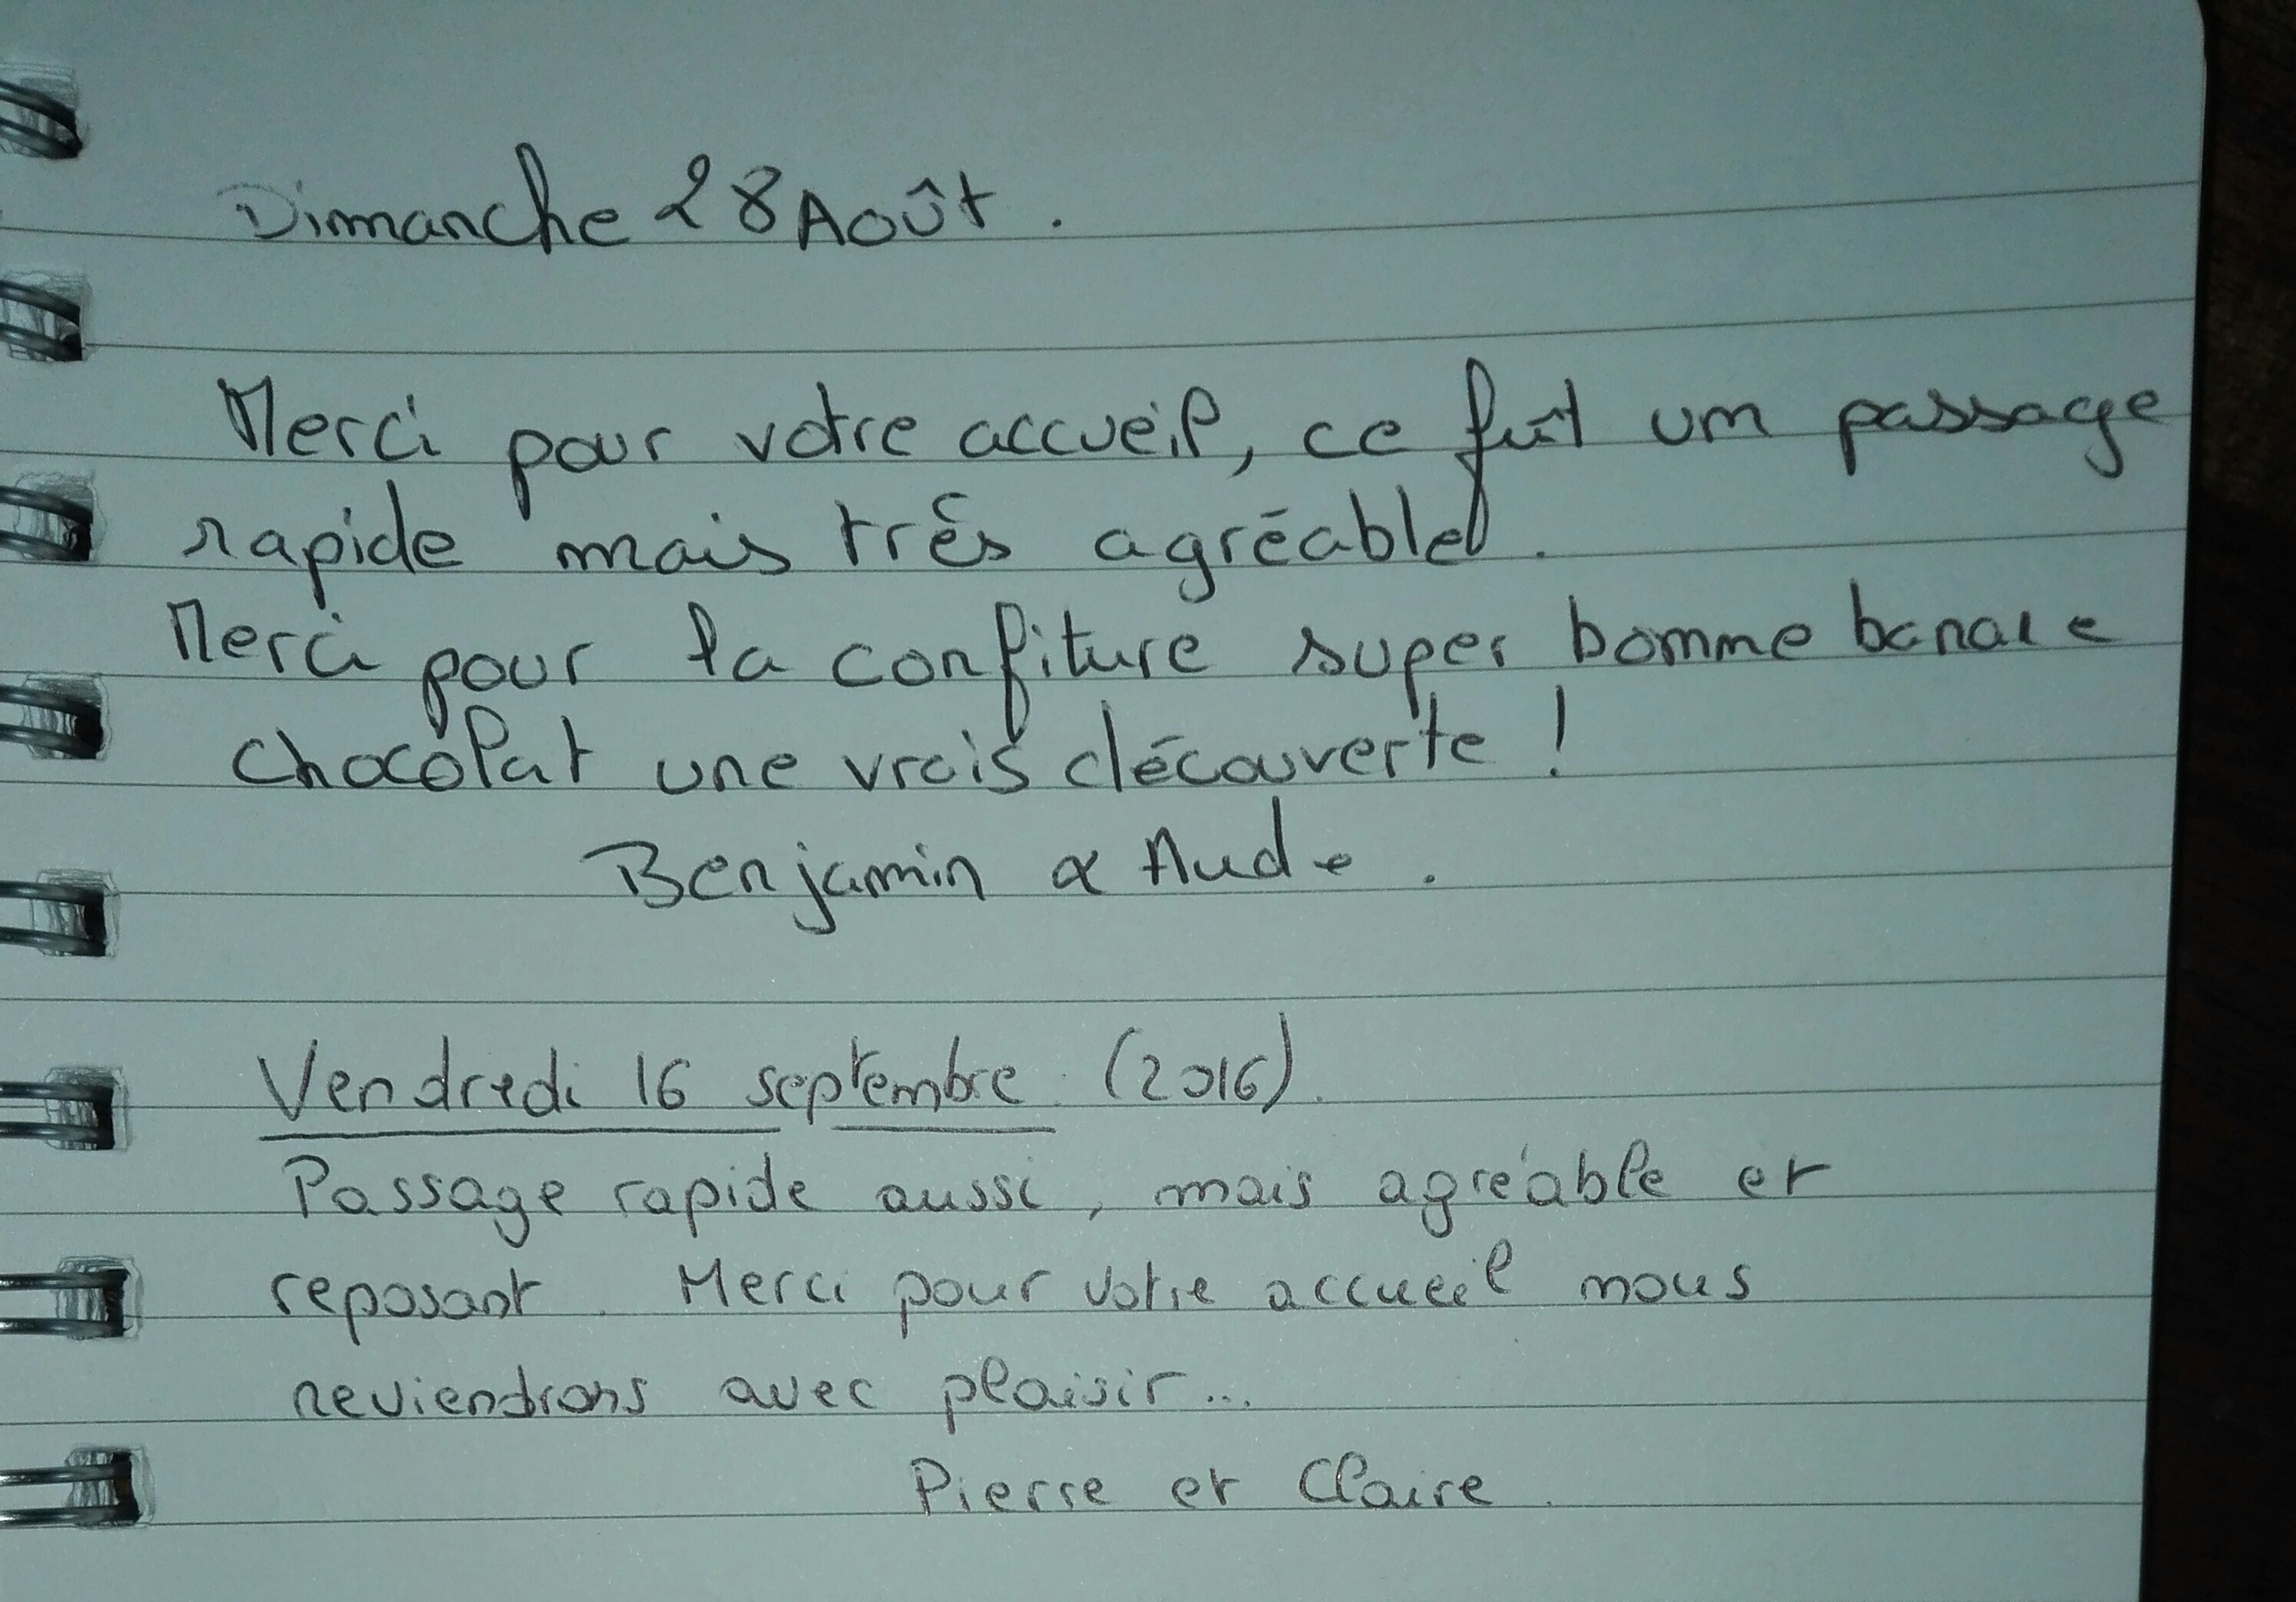 Dimanche 28 Août.
Merci pour votre accueil, ce fût un passage
rapide mais très agréable.
Merci pour la confiture super bonne banane
chocolat une vrais découverte !
Benjamin & Aude.
Vendredi 16 septembre (2016).
Passage rapide aussi, mais agréable et
reposant. Merci pour votre accueil nous
reviendrons avec plaisir...
Pierre et Claire.